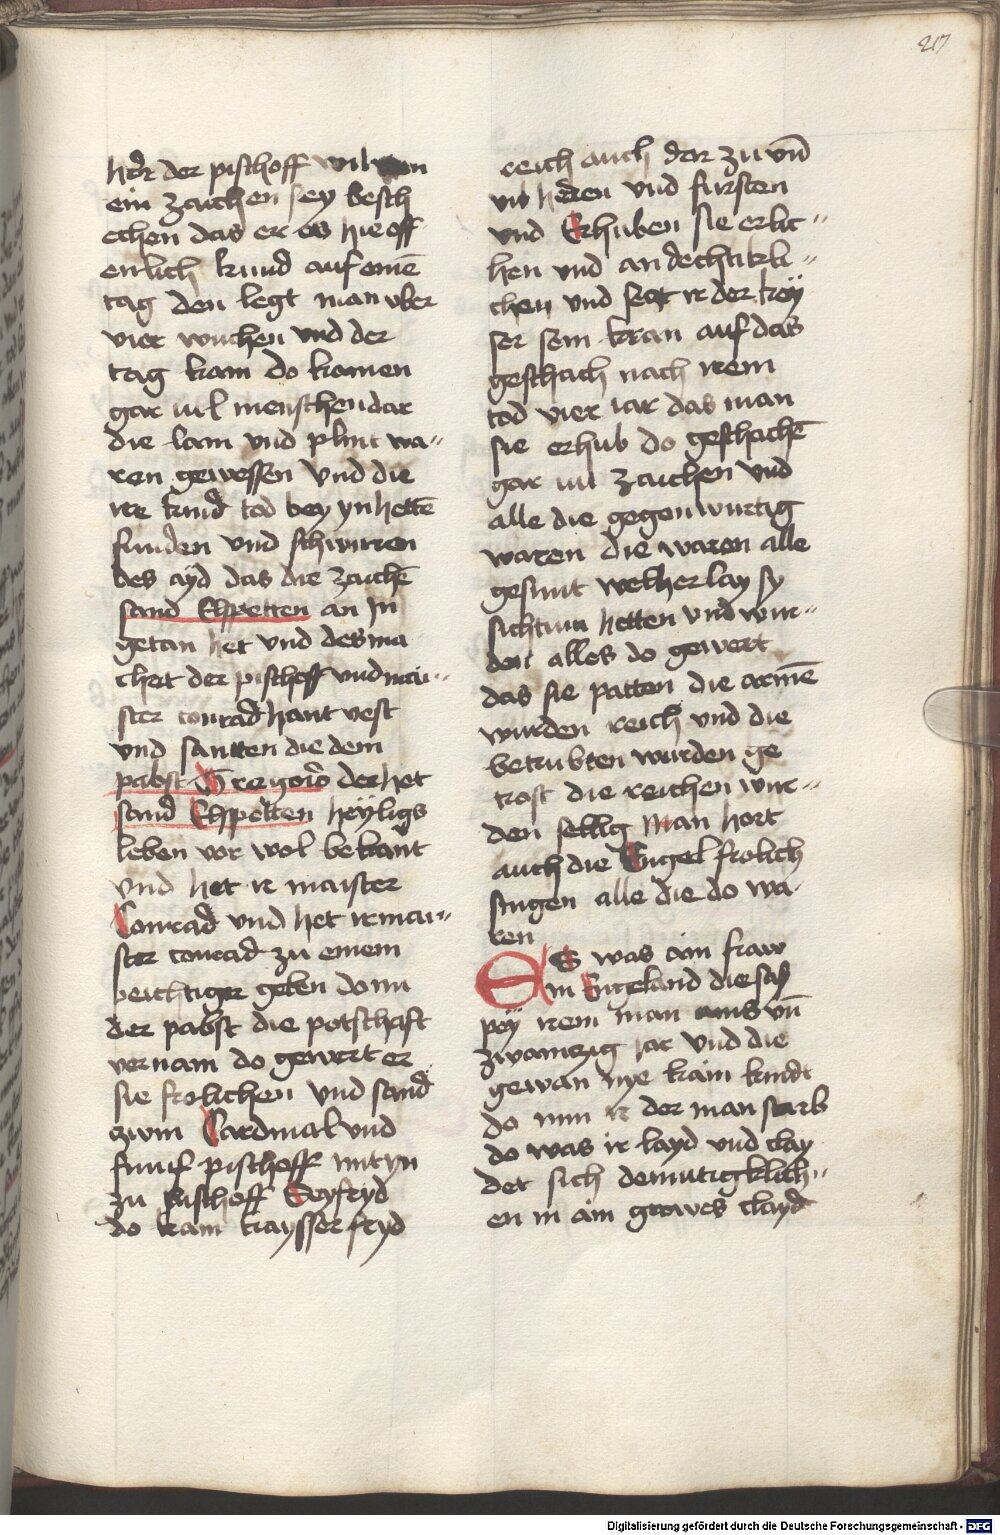 217
her der pischoff wil
ein zaichen sey besch
echen das er es hie off
enlich kund auf einē
tag den legt man vber
vier wuchen vnd der
tag kam do komen
gar vil menschen dar
die lam vnd plint wa=
ren gewessen vnd die
ire kind tod bey yn hettē
funden vnd schwuren
des ayd das die zaichē
sand Elspetten an Jn
getan het vnd des ma
chet der pischoff vnd mai=
ster conrad hant vest
vnd santten die dem
pabst Gregorio der het
sand Elspetten heyligs
leben vor wol bekant
vnd het ir maister
Conrad vnd het ir mai=
ster conrad zu einem
peichtiger geben do nu
der pabst die potschaft
vernam do gewert er
sie frolichen vnd sand
zwin Cardinal vnd
funf pischoff mit yn
zu pischoff Seyfryd
do kam kaysser fryd
reich auch dar zu vn̄
vil heren vnd fursten
vnd Erhuben sie erlic=
hen vnd andechtikli=
chen vnd satzt ir der key
ser sein kran auf das
geschach nach irem
tod vier iar das man
sie erhub do geschachē
gar vil zaichen vnd
alle die gegenwurtig
waren die waren alle
gesunt welherlay sy
sichtum hetten vnd wur=
den alles do gewert
das sie patten die armē
wurden reich vnd die
betrubten wurden ge
trost die reichen wur=
den sellig Man hort
auch die Engel frolich
singen alle die do wa
ren
ES was ain fraw
in Engeland die sas
pey irem man ains vn̄
zwainzig jar vnd die
gewan nye kain kindt
do nun ir der man starb
do was ir layd vnd clay
det sich demutigklich=
en in ain growes clayd
Digitalisierung gefördert durch die Deutsche Forschungsgemeinschaft - DFG